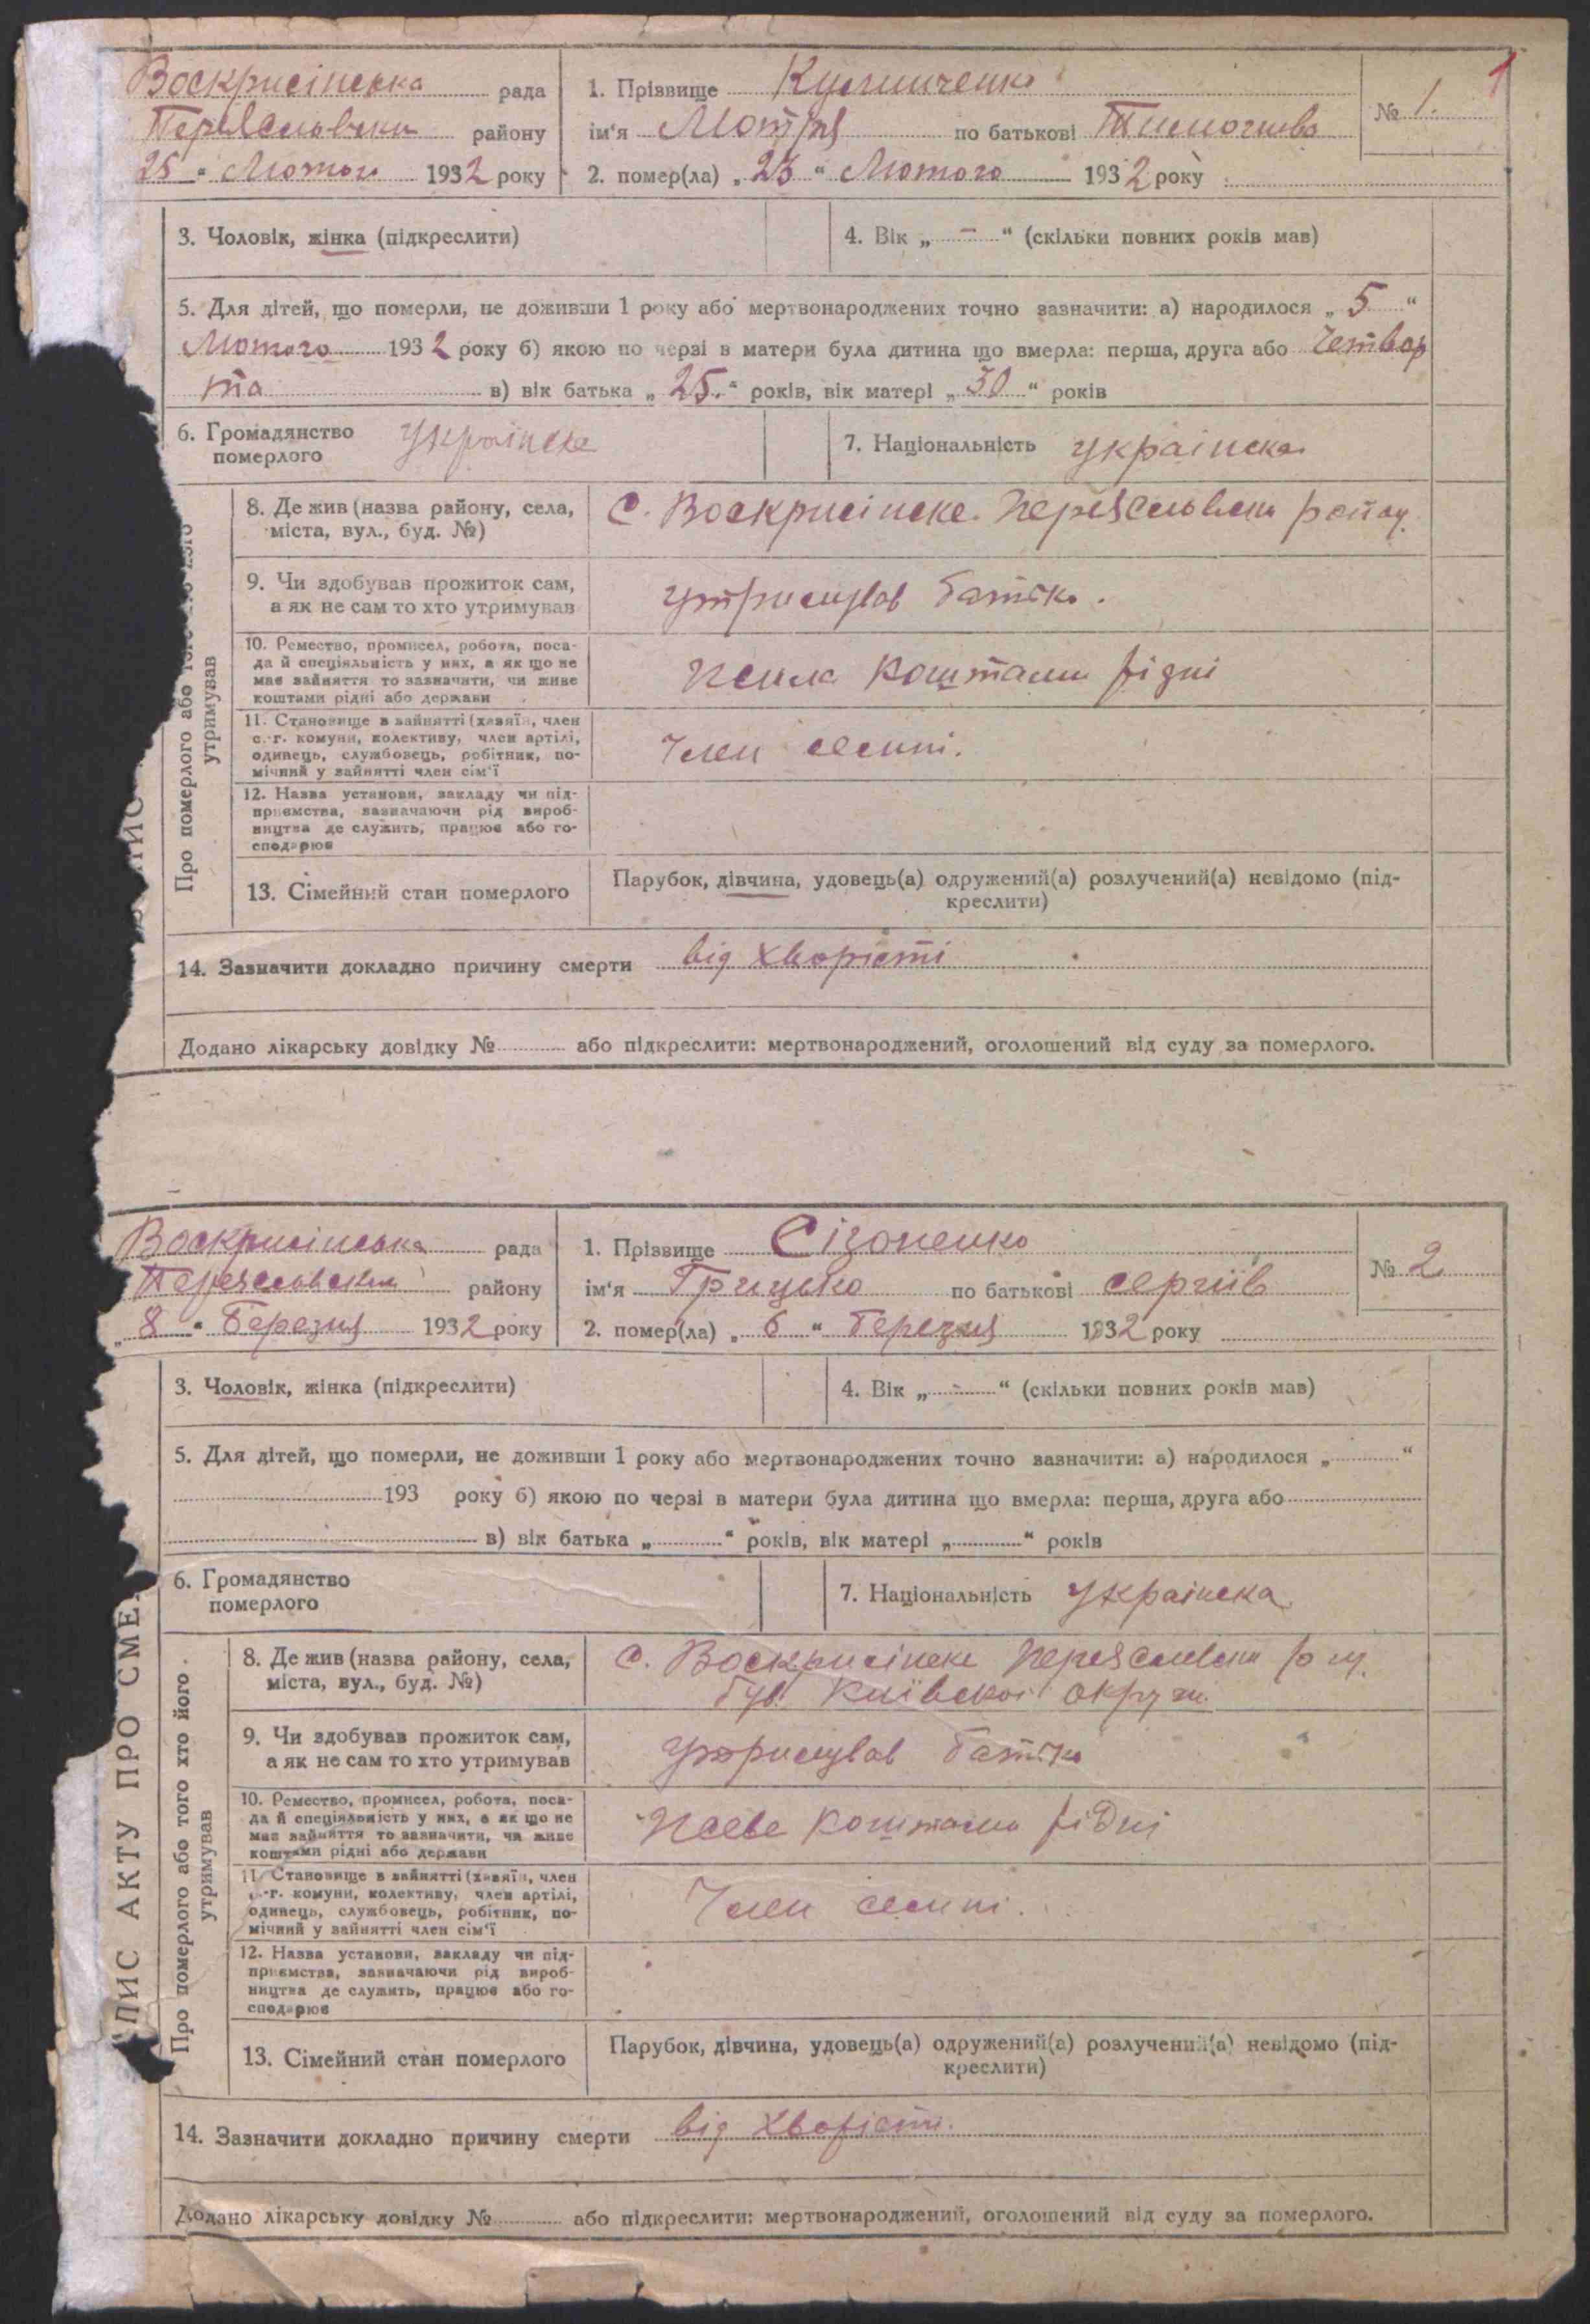 Воскрисінська рада
Переяславськ району
25 " Лютого 1932 року
1. Прізвище
ім'я Мотря по батькові Тимошова
2. помер(ла) „ 23 " Лютого 1932 року
№ 1.
1
3. Чоловік, жінка (підкреслити)
4. Вік „ – " (скільки повних років мав)
5. Для дітей, що померли, не доживши 1 року або мертвонароджених точно зазначити: а) народилося „ 5 "
Лютого 1932 року б) якою по черзі в матери була дитина що вмерла: перша, друга або четвар
та в) вік батька „ 25. " років, вік матері „ 30 " років
6. Громадянство
померлого
українске
7. Національність українска
Про померлого або того хто його
утримував
8. Де жив (назва району, села,
міста, вул., буд. №)
с. Воскрисінске Переяславськ району.
9. Чи здобував прожиток сам,
а як не сам то хто утримував
утримував батько.
10. Ремество, промисел, робота, поса-
да й спеціяльність у них, а як що не
має зайняття то зазначити, чи живе
коштами рідні або держави
жила коштами рідні
11. Становище в зайнятті (хазяїн, член
с.-г. комуни, колективу, член артілі,
одинець, службовець, робітник, по-
мічний у зайнятті член сім'ї
Член семиі.
12. Назва установи, закладу чи під-
приємства, зазначаючи рід вироб-
ництва де служить, працює або го-
сподарює
13. Сімейний стан померлого
Парубок, дівчина, удовець(а) одружений(а) розлучений(а) невідомо (під-
креслити)
14. Зазначити докладно причину смерти від хворісті
Додано лікарську довідку № або підкреслити: мертвонароджений, оголошений від суду за померлого.
Воскрисінська рада
Переяславськ району
„ 8 " Березня 1932 року
1. Прізвище Сізоненко
ім'я Грицько по батькові Сергіїв
2. помер(ла) „ 6 " Березня 1932 року
№ 2
3. Чоловік, жінка (підкреслити)
4. Вік „ – " (скільки повних років мав)
5. Для дітей, що померли, не доживши 1 року або мертвонароджених точно зазначити: а) народилося „ "
193 року б) якою по черзі в матери була дитина що вмерла: перша, друга або
в) вік батька „ " років, вік матері „ " років
6. Громадянство
померлого
7. Національність Українска
ПИС АКТУ ПРО СМЕ
Про померлого або того хто його
утримував
8. Де жив (назва району, села,
міста, вул., буд. №)
с. Воскрисінске Переяславськ
був. Київскої округи.
9. Чи здобував прожиток сам,
а як не сам то хто утримував
утримував батько
10. Ремество, промисел, робота, поса-
да й спеціяльність у них, а як що не
має зайняття то зазначити, чи живе
коштами рідні або держави
живе коштами рідні
11. Становище в зайнятті (хазяїн, член
с.-г. комуни, колективу, член артілі,
одинець, службовець, робітник, по-
мічний у зайнятті член сім'ї
Член семиі.
12. Назва установи, закладу чи під-
приємства, зазначаючи рід вироб-
ництва де служить, працює або го-
сподарює
13. Сімейний стан померлого
Парубок, дівчина, удовець(а) одружений(а) розлучений(а) невідомо (під-
креслити)
14. Зазначити докладно причину смерти від хворісти.
Додано лікарську довідку № або підкреслити: мертвонароджений, оголошений від суду за померлого.